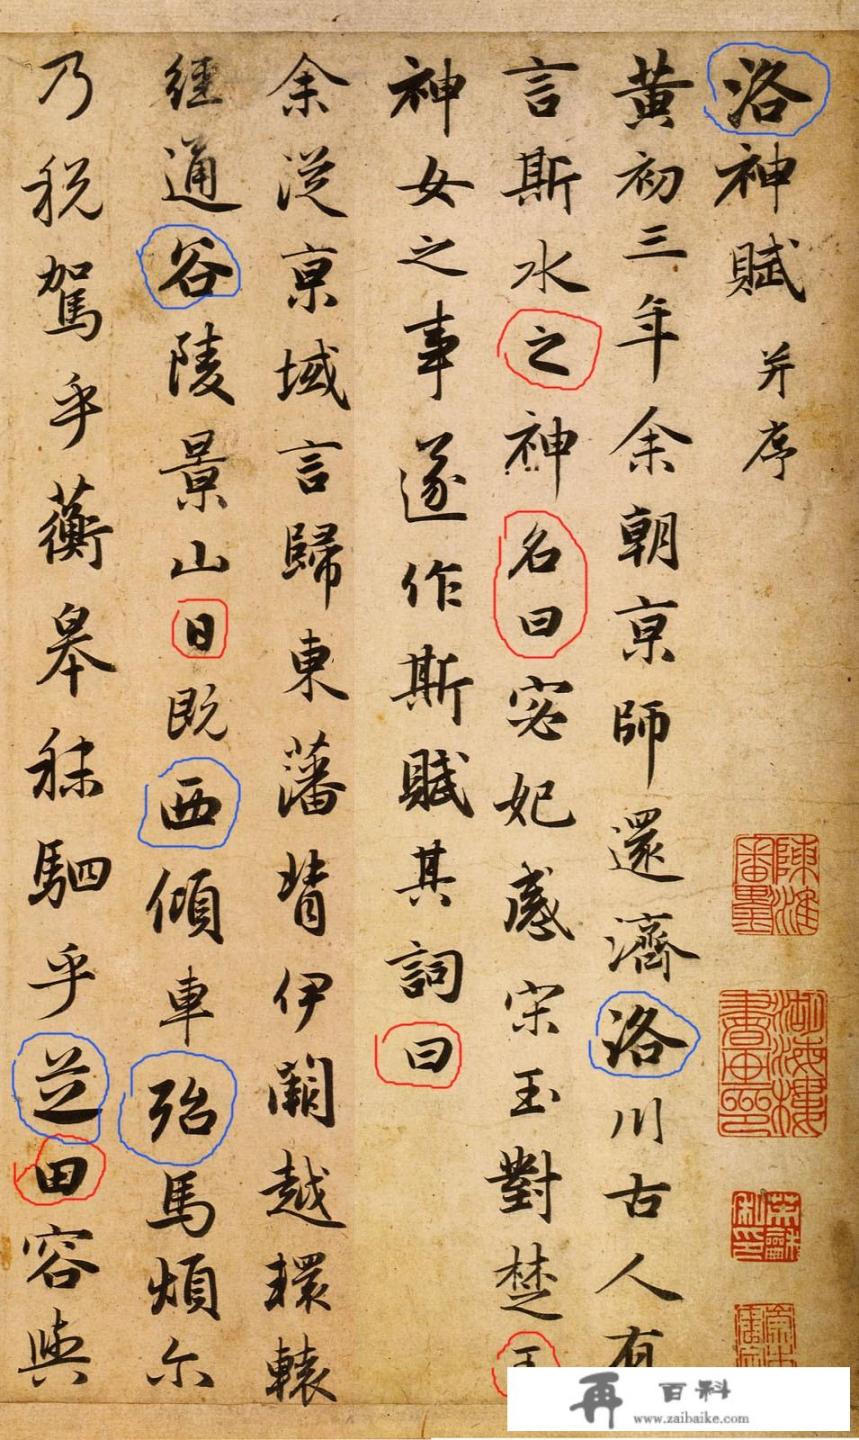 洛神賦 并序
黄初三年余朝亰師還濟洛川古人有
言斯水之神名曰宓妃感宋玉對楚王
神女之事遂作斯賦其詞曰
余從亰域言歸東藩背伊闕越轘轅
經通谷陵景山日既西傾車殆馬煩尔
乃税駕乎蘅皋秣駟乎芝田容與
再百科
www.zaibaike.com